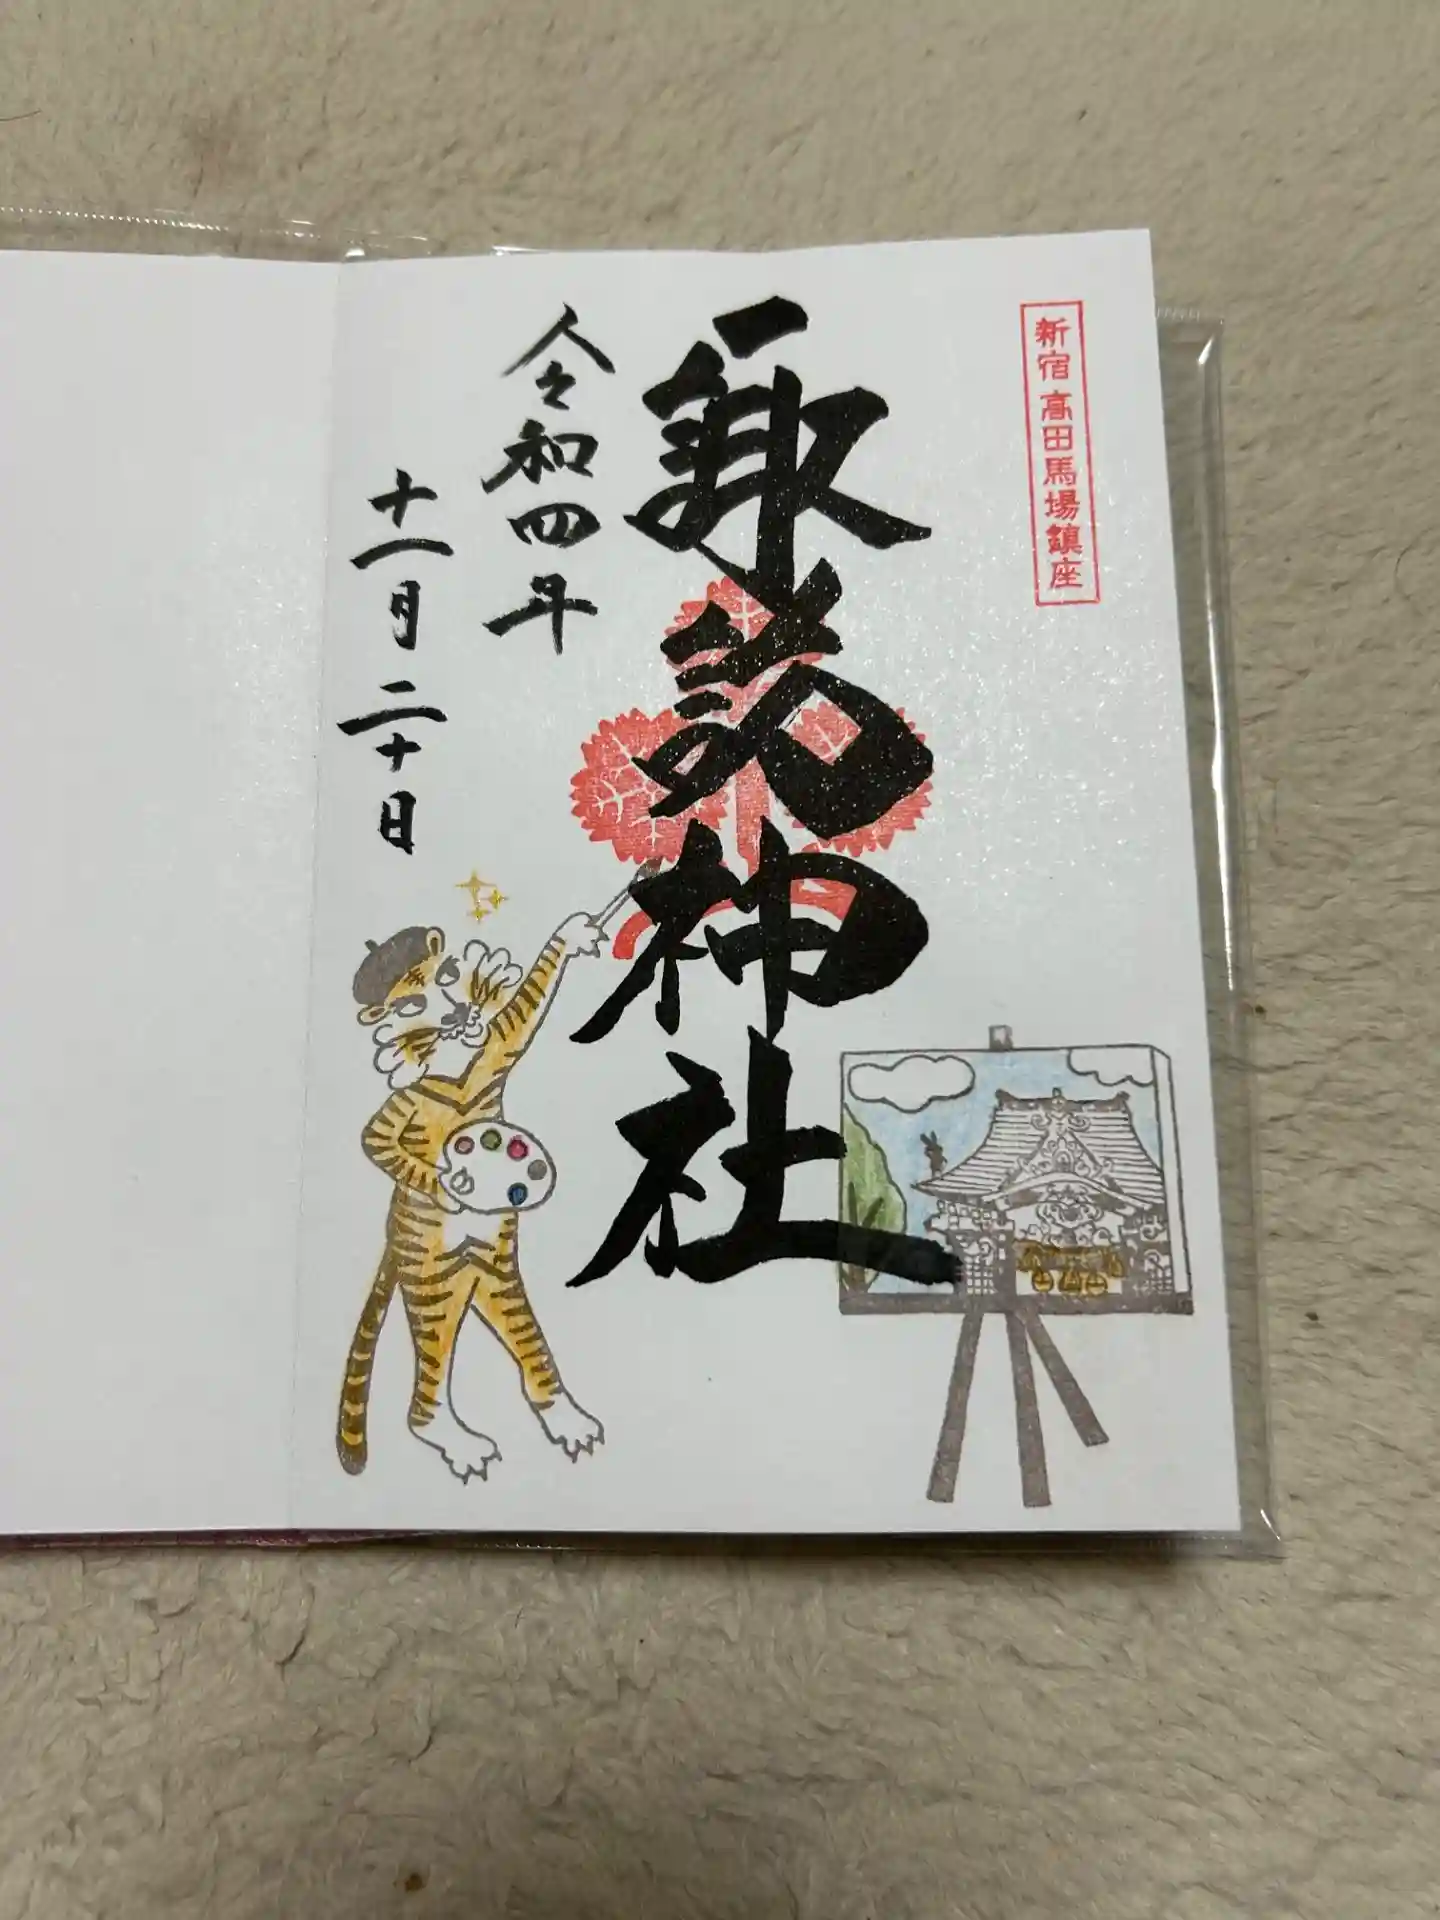 新宿高田馬場鎮座
諏訪神社
令和四年
十一月二十日